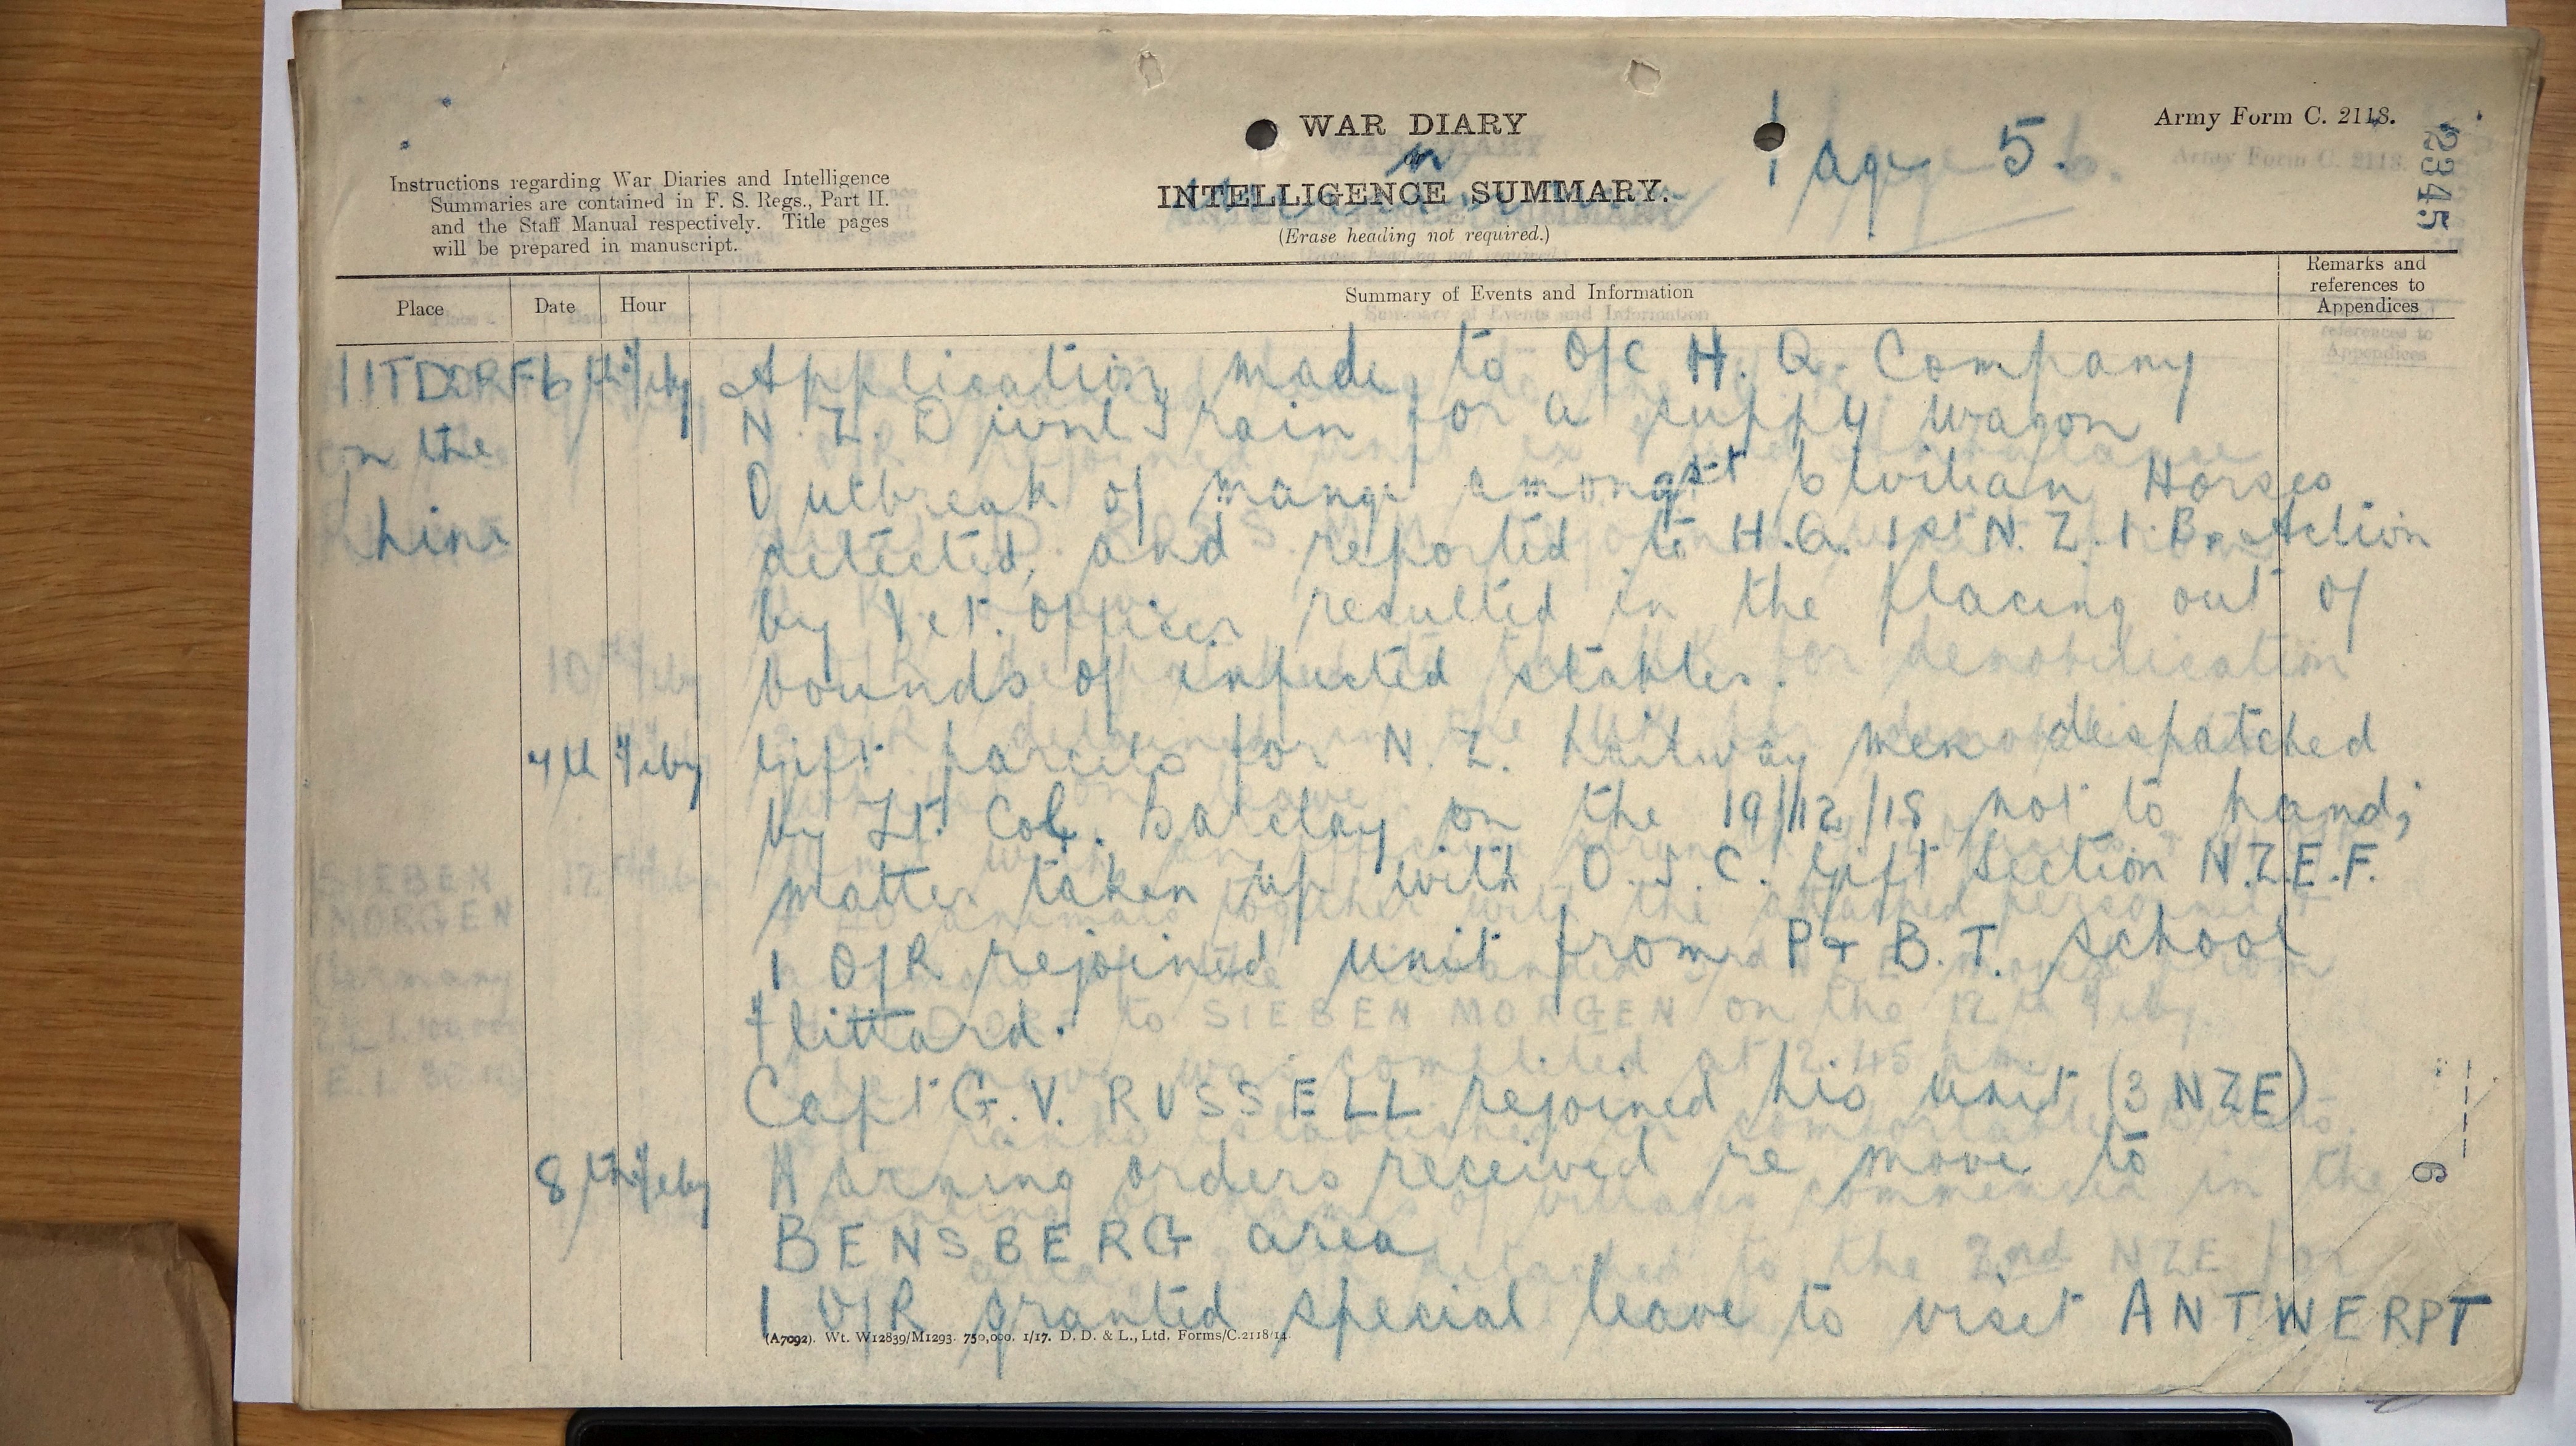 WAR DIARY
or
INTELLIGENCE SUMMARY.
(Erase heading not required.)
Page 5.
Army Form C. 2118.
2345
Instructions regarding War Diaries and Intelligence
Summaries are contained in F. S. Regs., Part II.
and the Staff Manual respectively. Title pages
will be prepared in manuscript.
Place Date Hour Summary of Events and Information Remarks and references to Appendices
ITDORF 6th Feby Application made to O/C H. Q. Company
on the N. Z. Divnl Train for a supply wagon
Outbreak of mange amongst Civilian Horses
Rhine detected, and reported to H.Q. 1st N. Z. I. B. Action
by Vet. Officer resulted in the placing out of
bounds of infected stables.
7th Feby Gift parcels for N. Z. Railway men despatched
by Lt. Col. Barclay on the 19/12/18 not to hand;
matter taken up with O. I. C. Gift Section N.Z.E.F.
1 O/R rejoined unit from P & B. T. School
Flittard.
Capt G. V. RUSSELL rejoined his unit (3 NZE)
8th Feby Warning orders received re move to
BENSBERG area
1 O/R granted special leave to visit ANTWERPT
(A7092). Wt. W12839/M1293. 750,000. 1/17. D. D. & L., Ltd. Forms/C.2118/14.
6